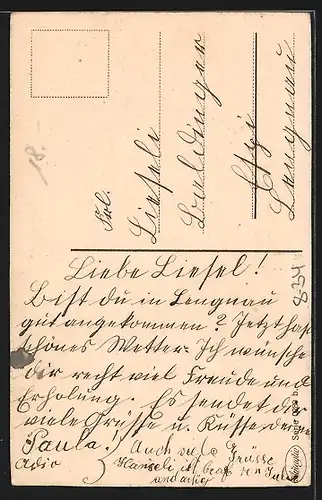 Frl.
Lieseli
Baldinger
Egg
Lengnau
18.-
834
Liebe Liesel!
Bist du in Lengnau
gut angekommen? Jetzt hast
schönes Wetter. Ich wünsche
dir recht viel Freude und
Erholung. Es sendet dir
viele Grüsse u. Küsse deine
Paula!
Adio
Auch viele Grüsse
Hanseli ist brav
und artig
Serie